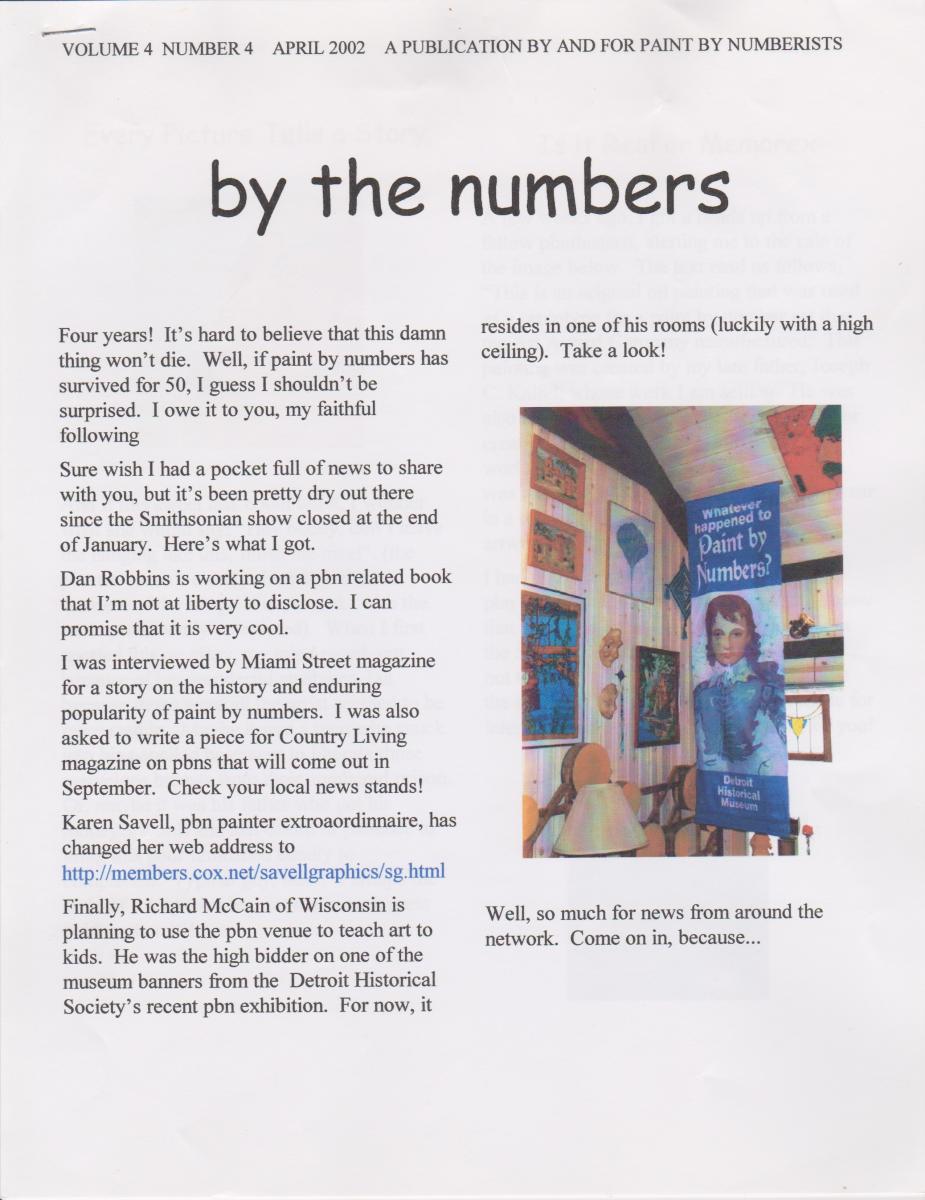 VOLUME 4 NUMBER 4 APRIL 2002 A PUBLICATION BY AND FOR PAINT BY NUMBERISTS
by the numbers
Four years! It's hard to believe that this damn
thing won't die. Well, if paint by numbers has
survived for 50, I guess I shouldn't be
surprised. I owe it to you, my faithful
following
Sure wish I had a pocket full of news to share
with you, but it's been pretty dry out there
since the Smithsonian show closed at the end
of January. Here's what I got.
Dan Robbins is working on a pbn related book
that I'm not at liberty to disclose. I can
promise that it is very cool.
I was interviewed by Miami Street magazine
for a story on the history and enduring
popularity of paint by numbers. I was also
asked to write a piece for Country Living
magazine on pbns that will come out in
September. Check your local news stands!
Karen Savell, pbn painter extroaordinnaire, has
changed her web address to
http://members.cox.net/savellgraphics/sg.html
Finally, Richard McCain of Wisconsin is
planning to use the pbn venue to teach art to
kids. He was the high bidder on one of the
museum banners from the Detroit Historical
Society's recent pbn exhibition. For now, it
resides in one of his rooms (luckily with a high
ceiling). Take a look!
Whatever
happened to
Paint by
Numbers?
Detroit
Historical
Museum
Well, so much for news from around the
network. Come on in, because...